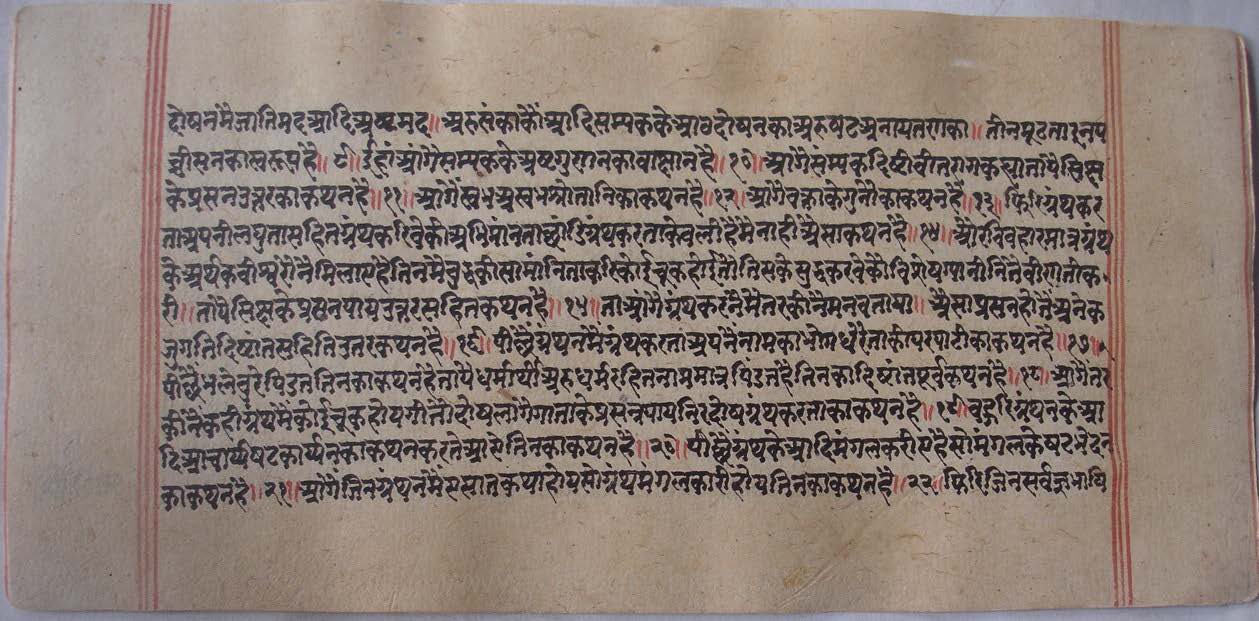 दोषनमैजातिमदआदिअष्टमद॥अरुसंकाकौंआदिसम्यककेआठदोषनकाअरुषटअनायतनका॥तीनमूढताइनप
चीसनकास्वरूपहै॥९॥ईहांआगैसम्यककेअष्टगुणनकावाष्यानहै॥१०॥आगैसम्यकदिष्टीवीतरागक
केप्रसनउत्तरकाकथनहै॥११॥आगैसुभअसुभश्रोतानिकाकथनहै॥१२॥आगैवक्ताकेगुनौकाकथनहै॥१३॥फिरिग्रंथकर
ताअपनीलघुतासहितग्रंथकरिवेकीअभिमांनता ग्रंथकरताकेवलीहैमैनाहीअैसाकथनहै॥१४॥औरनिवहारमात्रग्रंथ
केअर्थ मिलाएहैतिनमै कोईचूकहोईतौतिसकेसुद्धकरवेकौ
री॥तापैसिक्षकेप्रसनपायउत्तरसहितकथनहै॥१५॥ताआगैग्रंथकरनैमै अैसाप्रसनहोतैअनेक
जुगतिदिष्टांतसहितउतरकथनहै॥१६॥पीछैग्रंथनमैग्रंथकरताअपनैनामकाभोगधरैताकीपरपाटीकाकथनहै॥१७॥
पीछैभलेबुरेपिंडततिनकाकथनहैतापैधर्मार्थीअरुधर्मरहितनाममात्रपिंडतहैतिनकादिष्टांतपूर्वककथनहै॥१८॥आगैतर
कीनैकहीग्रंथमैकोईचूकहोयगीतौदोषलागैगाताकेप्रसनपायनिरदोषग्रंथकरताकाकथनहै॥१९॥बहुरिग्रंथनकेआ
दिआचार्यषटकार्यनकाकथनकरतेआएतिनकाकथनहै॥२०॥पीछैग्रंथकेआदिमंगलकरीसहैसोमंगलकेषटभेदन
काकथनहै॥२१॥आगैजिनग्रंथनमैएसातकथाहोयसोग्रंथमंगलकारीहोयतिनकाकथनहै॥२२॥फिरिजिनसर्वज्ञभाषि